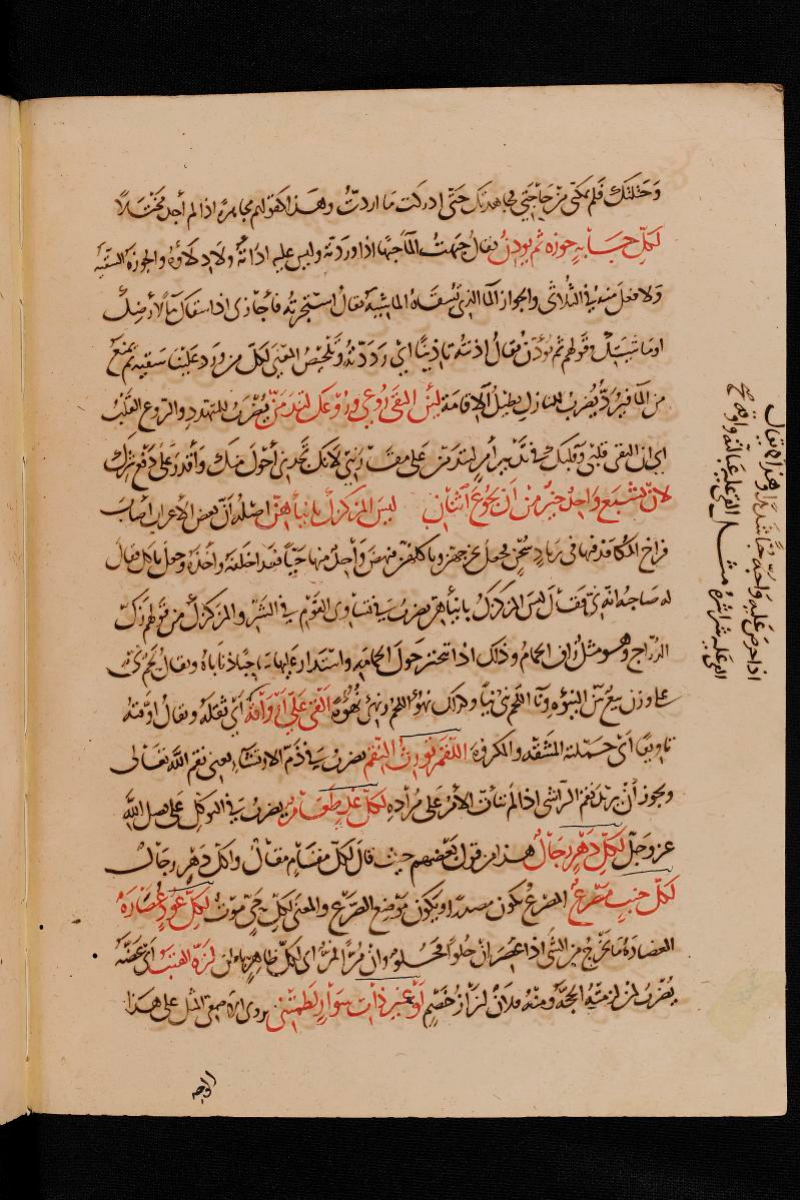 وَخَتَلتك فلم يمكنى من حاجتى مجاهدتك حتى ادركت ما اردتُ وهذا كقولهم مجاهرة اذا لم أجد مختلاً
لكلّ جابهٍ جوزة ثم يؤذن يقال جبهت الماء جبها اذا وردته وليس عليه اداته ولا دلاؤه والجوزة السقية
ولا فعل منه فى الثلاثى والجواز الماء الذى تسقاه الماشية يقال استجزته فأجازنى اذا سقاك ماء لأرضك
او ماشيتك وقولهم ثم يؤذن يقال اذنته تأذينا اى رددته وتلخيص المعنى لكل من ورد علينا سقية ثم يمنع
من الماء فيردّ يضرب للنازل يطيل الاقامة لئن التقى رُوعى ورُوعك لتندمنّ يضرب للتهدد والروع القلب
اى ان التقى قلبى وقلبك فى تدبير أمر لتندمنّ على مقاربتى لانك تجدنى أحول منك وأقدر على دفع شرك
لان يشبع واحد خير من أن يجوع اثنان ليس المزكزك بأنيأهنّ اصله أن بعض الاعراب أصاب
فراخ المكاء فدفنها فى رماد سخن فجعل يخرجهن وياكلهن فنهض واحد منها حيا فعدا خلفه وأخذه وجعل ياكل فقال
له صاحبه انه نى فقال ليس المزكزك بأنيأهنّ يضرب فى تساوى القوم فى الشر والمزكزك من قولهم زكّ
الدراج وهو مثل زاف الحمام وذلك اذا تبختر حول الحمامة واستدار عليها
على وزن نيع بيّن النيوءة وناء اللحم ينئ نيأ وكذلك نهؤ اللحم ونهئ نهوءة ألقى علىّ أزواقه أى ثقله ويقال أوّقته
تأويقا أى حملته المشقة والمكروه اللقم تورث النقم يضرب فى ذم الارتشاء يعنى نقم الله تعالى
ويجوز أن يريد نقم الراشى اذا لم تأت الأمر على مراده لكل غد طعام يضرب فى التوكل على فضل الله
عز وجل لكل دهر رجال هذا من قول بعضهم حيث قال لكل مقام مقال ولكل دهر رجال
لكل جنب مصرع المصرع يكون مصدرا ويكون موضع الصرع والمعنى لكل حى موت لكل عود عصارة
العصارة ما يخرج من الشئ اذا عصر ان حلوا فحلو وان مرا فمر اى لكل ظاهر باطن لزه القتب أى عضه
يضرب لمن لزمته الحجة ومنه فلان لزاز خصم لو غير ذات سوار لطمتنى يروى الاصمعى المثل على هذا
الوجه